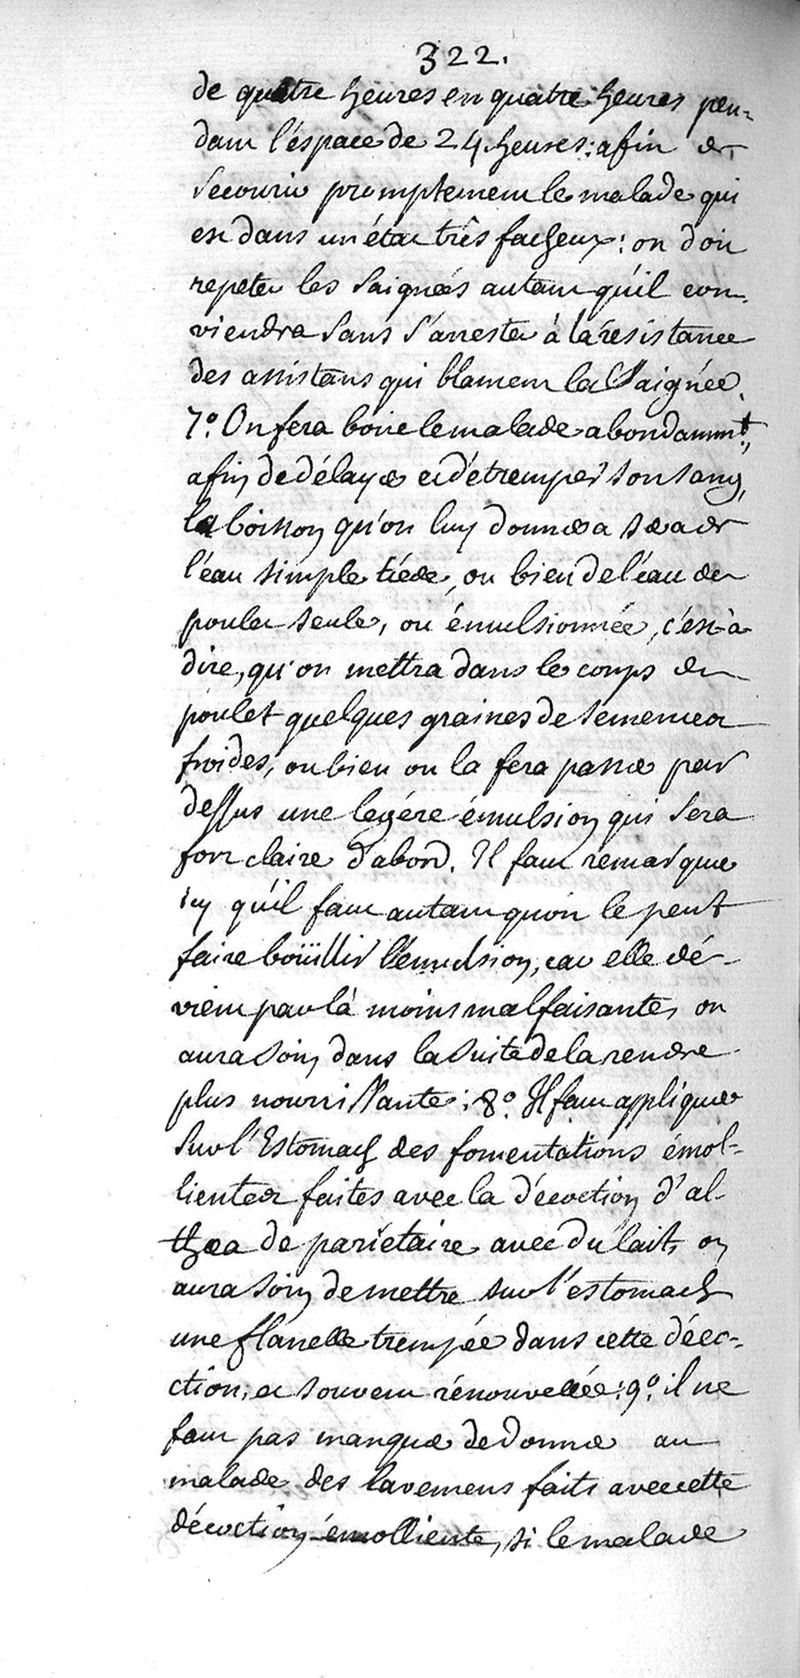 322.
de quatre heures en quatre heures pen-
dant l'éspace de 24 heures: afin de
secourir promptement le malade qui
est dans un état très facheux: on doit
repeter les saignées autant qu'il con-
viendra sans s'arrester à la résistance
des assistans qui blament la Saignée.
7.º On fera boire le malade abondammt.,
afin de délayer et détremper son sang,
la boisson qu'on luy donnera sera de
l'éau simple tiéde, ou bien de l'éau de
poulet seule, ou émulsionnée, c'est-à
dire, qu'on mettra dans le corps du
poulet quelques graines de semences
froides, ou bien on la fera passer par
dessus une legére émulsion qui sera
fort claire d'abord. Il faut remarquer
icy qu'il faut autant qu'on le peut
faire boüillir l'émulsion, car elle dé-
vient par là moins malfaisante, on
aura soin dans la suite de la rendre
plus nourrissante: 8.º Il faut appliquer
sur l'Estomach des fomentations émol-
lientes faites avec la décoction d'al-
thæa de pariétaire avec du lait, on
aura soin de mettre sur l'estomach
une flanelle trempée dans cette décoc-
ction, et souvent rénouvellée: 9.º il ne
faut pas manquer de donner au
malade des lavemens faits avec cette
décoction émolliente, si le malade